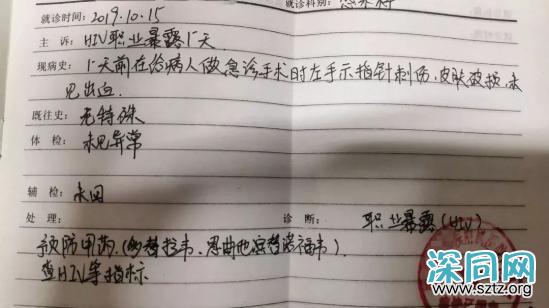 就诊时间：2019.10.15
就诊科别：
主 诉：HIV职业暴露1天
现病史：1天前在给病人做急诊手术时左手示指针刺伤，皮肤破损，未
见出血
既往史：无特殊
体 检：未见异常
辅 检：未回
处 理：
诊 断：职业暴露(HIV)
预防用药.(多替拉韦、恩曲他滨替诺福韦).
查HIV等指标
深同网
www.sztz.org